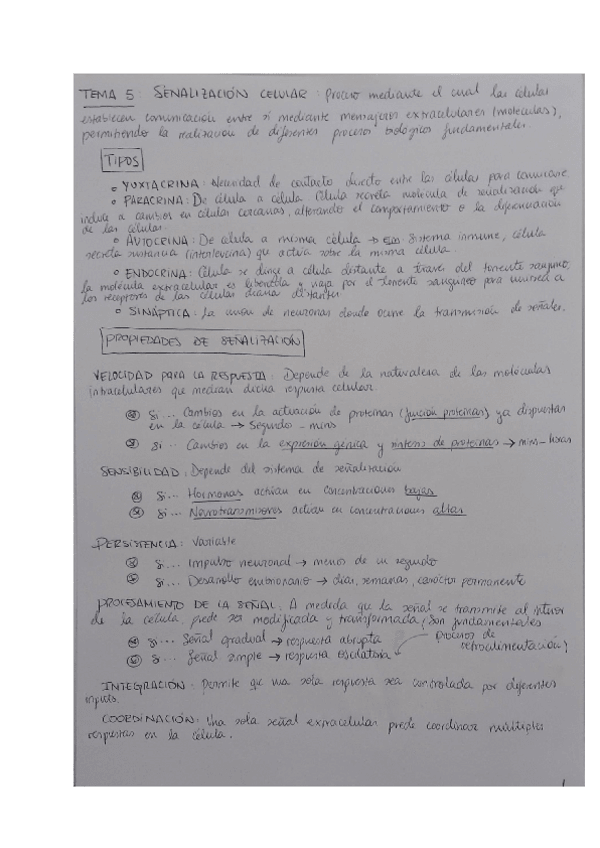 TEMA 5 : SEÑALIZACIÓN CELULAR : Proceso mediante el cual las células
establecen comunicación entre sí mediante mensajeros extracelulares (moléculas),
permitiendo la realización de diferentes procesos biológicos fundamentales.
TIPOS
YUXTACRINA : Necesidad de contacto directo entre las células para comunicarse.
PARACRINA : De célula a célula. Célula secreta molécula de señalización que
induce a cambios en células cercanas, alterando el comportamiento o la diferenciación
de las células.
AUTOCRINA : De célula a misma célula → Sistema inmune, célula
secreta sustancia (interleucina) que actúa sobre la misma célula.
ENDOCRINA : Célula se dirige a célula distante a través del torrente sanguíneo,
la molécula extracelular es liberada y viaja por el torrente sanguíneo para unirse a
los receptores de las células diana distantes.
SINÁPTICA : La unión de neuronas donde ocurre la transmisión de señales.
PROPIEDADES DE SEÑALIZACIÓN
VELOCIDAD PARA LA RESPUESTA : Depende de la naturaleza de las moléculas
intracelulares que median dicha respuesta celular.
Si ... Cambios en la actuación de proteínas (función proteínas) ya dispuestas
en la célula → Segundos - mins
Si ... Cambios en la expresión génica y síntesis de proteínas → mins - horas
SENSIBILIDAD : Depende del sistema de señalización
Si ... Hormonas actúan en concentraciones bajas
Si ... Neurotransmisores actúan en concentraciones altas
PERSISTENCIA : Variable
Si ... Impulso neuronal → menos de un segundo
Si ... Desarrollo embrionario → días, semanas, carácter permanente
PROCESAMIENTO DE LA SEÑAL : A medida que la señal se transmite al interior
de la célula, puede ser modificada y transformada, (Son fundamentales
Si ... Señal gradual → respuesta abrupta procesos de
Si ... Señal simple → respuesta oscilatoria retroalimentación)
INTEGRACIÓN : Permite que una sola respuesta sea controlada por diferentes
inputs.
COORDINACIÓN : Una sola señal extracelular puede coordinar múltiples
respuestas en la célula.